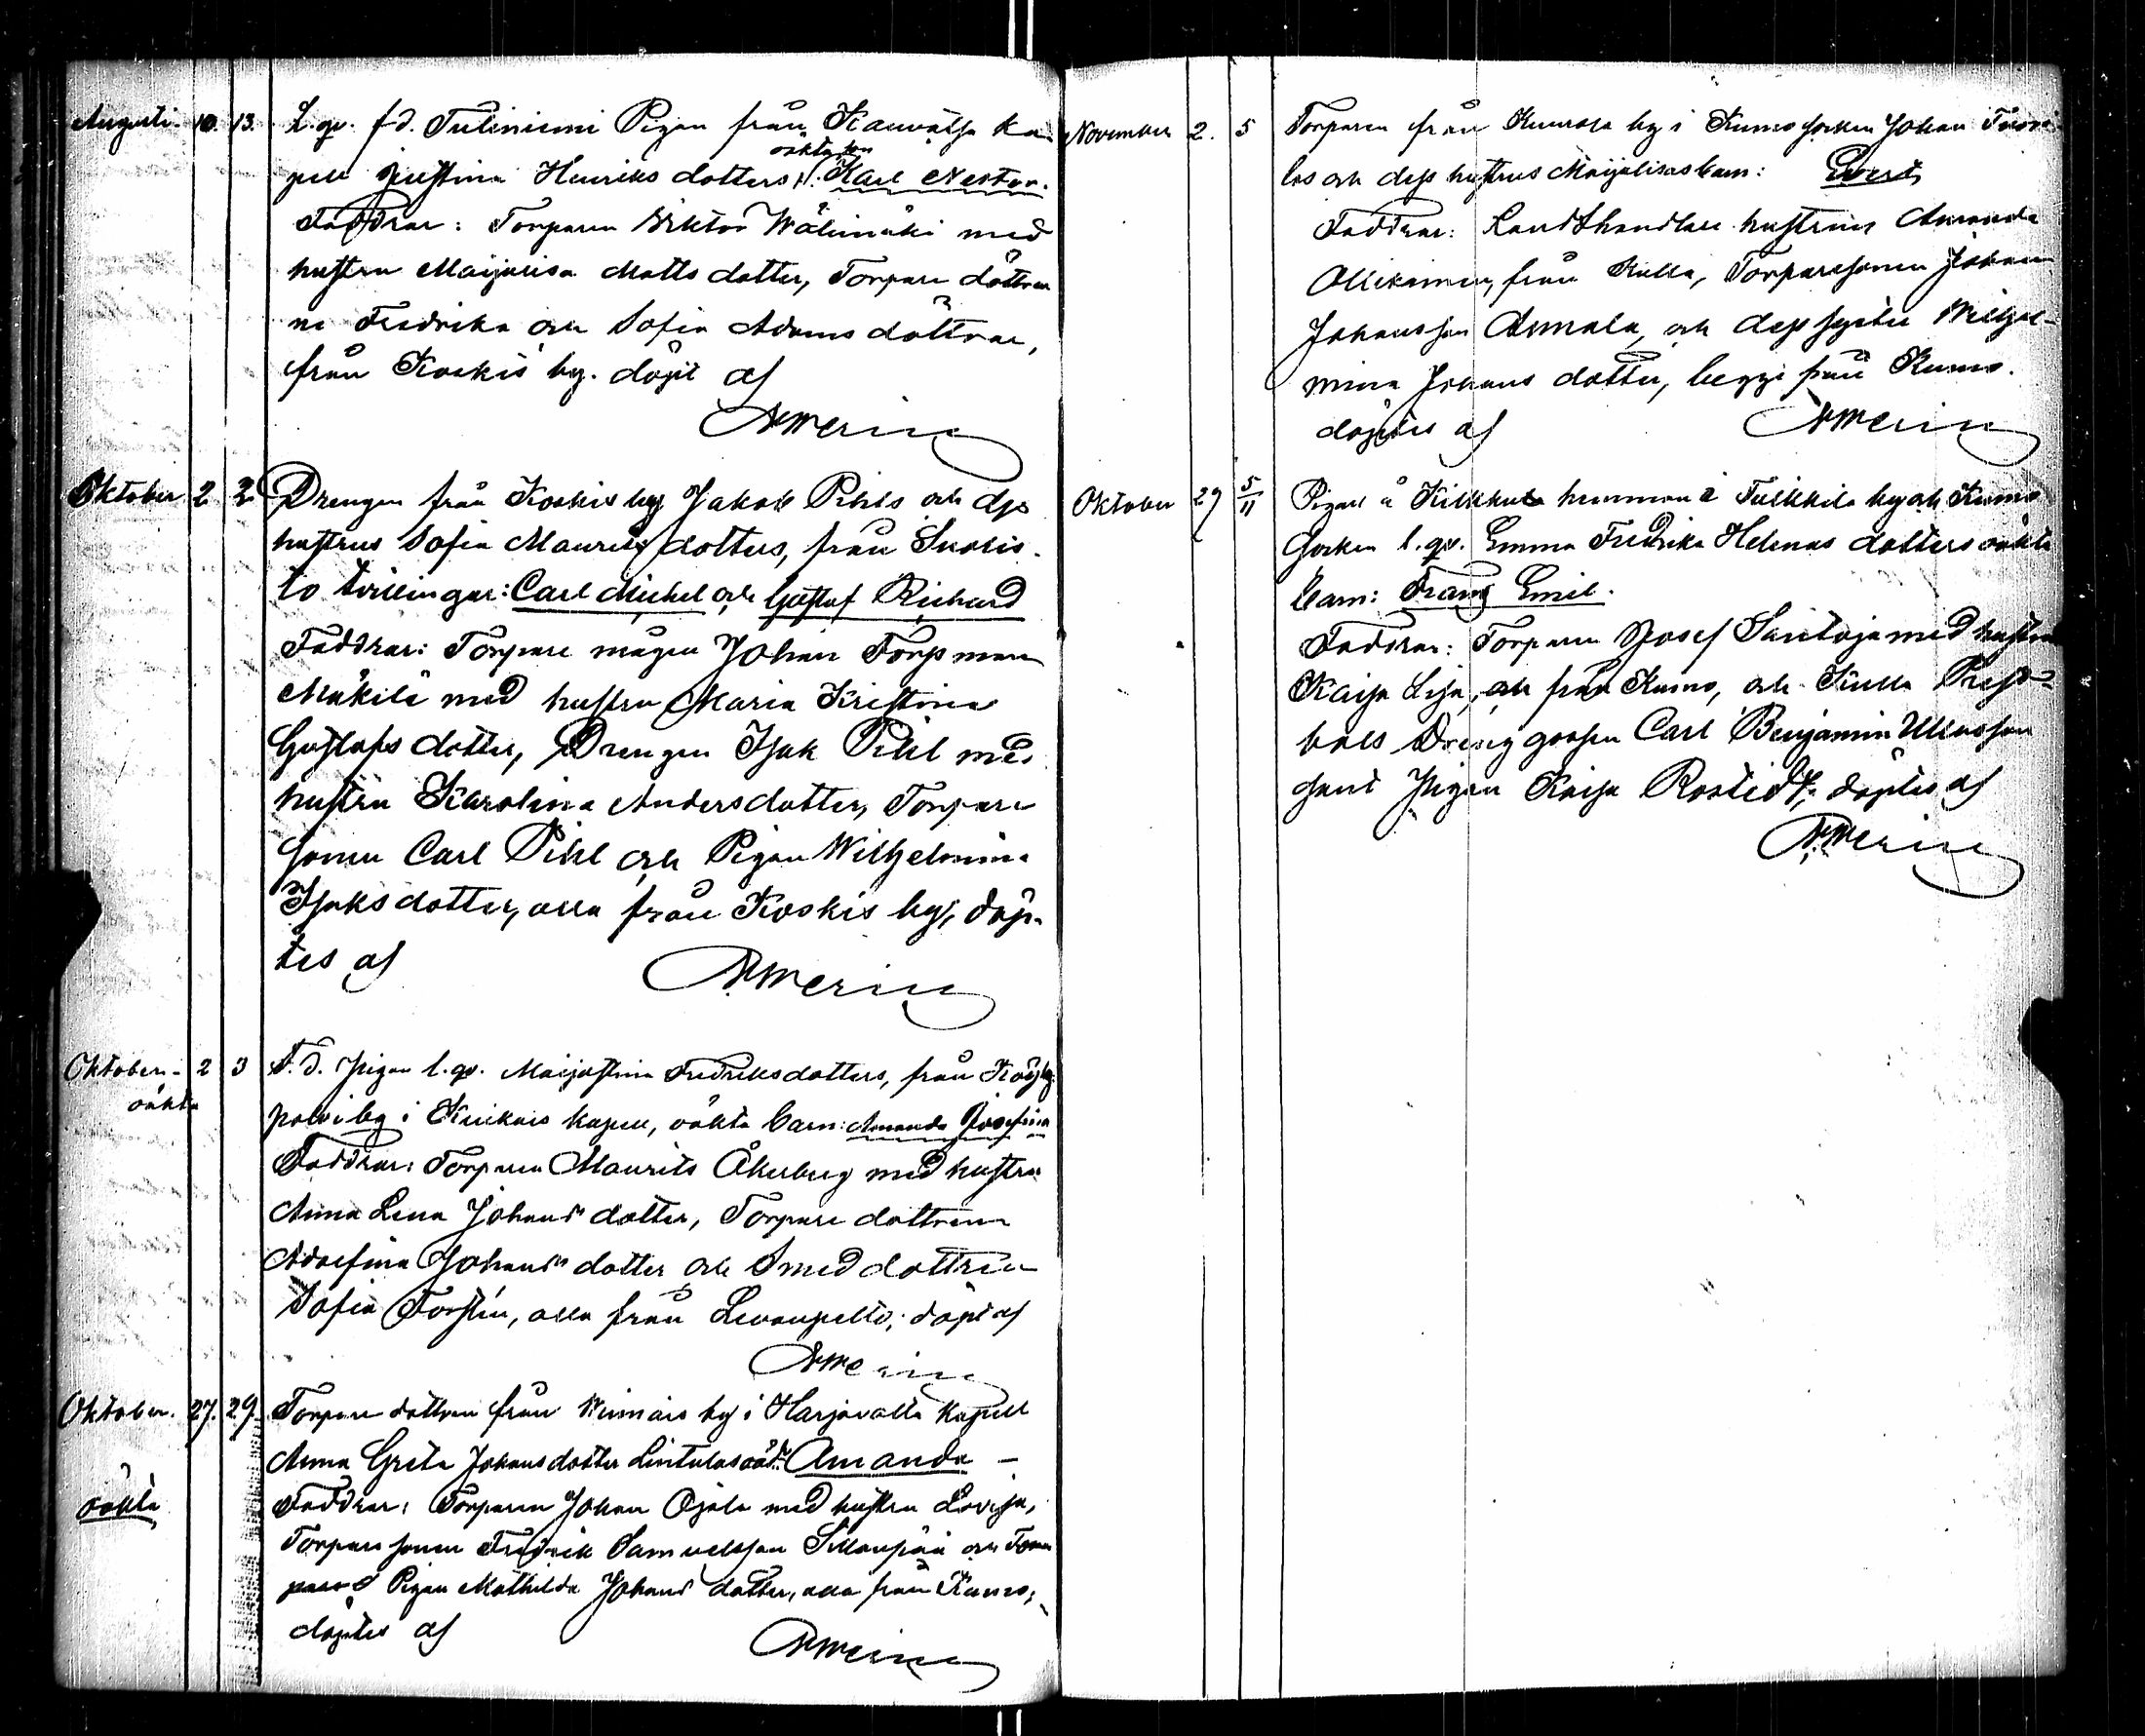 Augusti. 10. 13. L. qv. f.d. Tuliniemi Pigan från Kauvatsa ka-
oäkta son
pell Justina Henriks dotters N. Karl Nestor.
Faddrar: Torparen Viktor Wälimäki med
hustru Maijarisa Matts dotter, Torpare döttrar
na Fredrika och Sofia Adams döttrar,
från Koskis by. döpt af
AWerin
Oktober 2 2 Drengen från Koskis by Jakob Pihls och dess
hustrus Sofia Maurits dotters, från Suokis-
to tvillingar: Carl Michel och Gustaf Richard
Faddrar: Torpare mågen Johan Torpman
Mäkilä med hustru Maria Kristina
Gustafs dotter, Drengen Isak Pihl med
hustru Karolina Andersdotter, Torpare
sonen Carl Pihl och Pigan Wilhelmina
Isaksdotter, alla från Koskis by, döp-
tes af
AWerin
Oktober. 2 3 F.d. pigan l. qv. Maijastina Fredriksdotters, från
oäkta
polvi by i Kiukais kapell, oäkta barn: Amanda Josefina
Faddrar: Torparen Maurits Åkerberg med hustru
Anna Lena Johans dotter, Torpare dottren
Adolfina Johans dotter och Smed dottren
Sofia Forstén, alla från Levanpelto; döpt af
AWerin
Oktober. 27. 29. Torpare dottren från by i Harjavalta Kapell
Anna Greta Johansdotter Lintulas oäkt. Amanda –
Faddrar: Torparen Johan Ojala med hustru Lovisa,
oäkta
Torpare sonen Fredrik Samuelsson Sillanpää och
Pigan Mathilda Johans dotter, alla från Kumo;
döptes af
AWerin
November 2. 5 Torparen från by i Kumo socken Johan
las och dess hustrus Maijalisas barn: Evert
Faddrar: Landthandlare hustrun Amanda
Ollikainen, från Kulla, Torparesonen Johan
Johansson Anmala, och dess syster Wilhel-
mina Johans dotter, begge från Kumo.
döptes af
AWerin
Oktober 29 5/11 Pigan å hemman i Tulkkila by och Kumo
socken l. qv. Emma Fredrika Helenas dotters oäkta
barn: Frans Emil.
Faddrar: Torparen Josef Santoja med hustru
Kaisa Lisa, och från Kumo, och Kulla Prest-
bols Dreng gossen Carl Benjamin Ullasson
samt Pigan Kaisa Rostedt, döptes af
AWerin